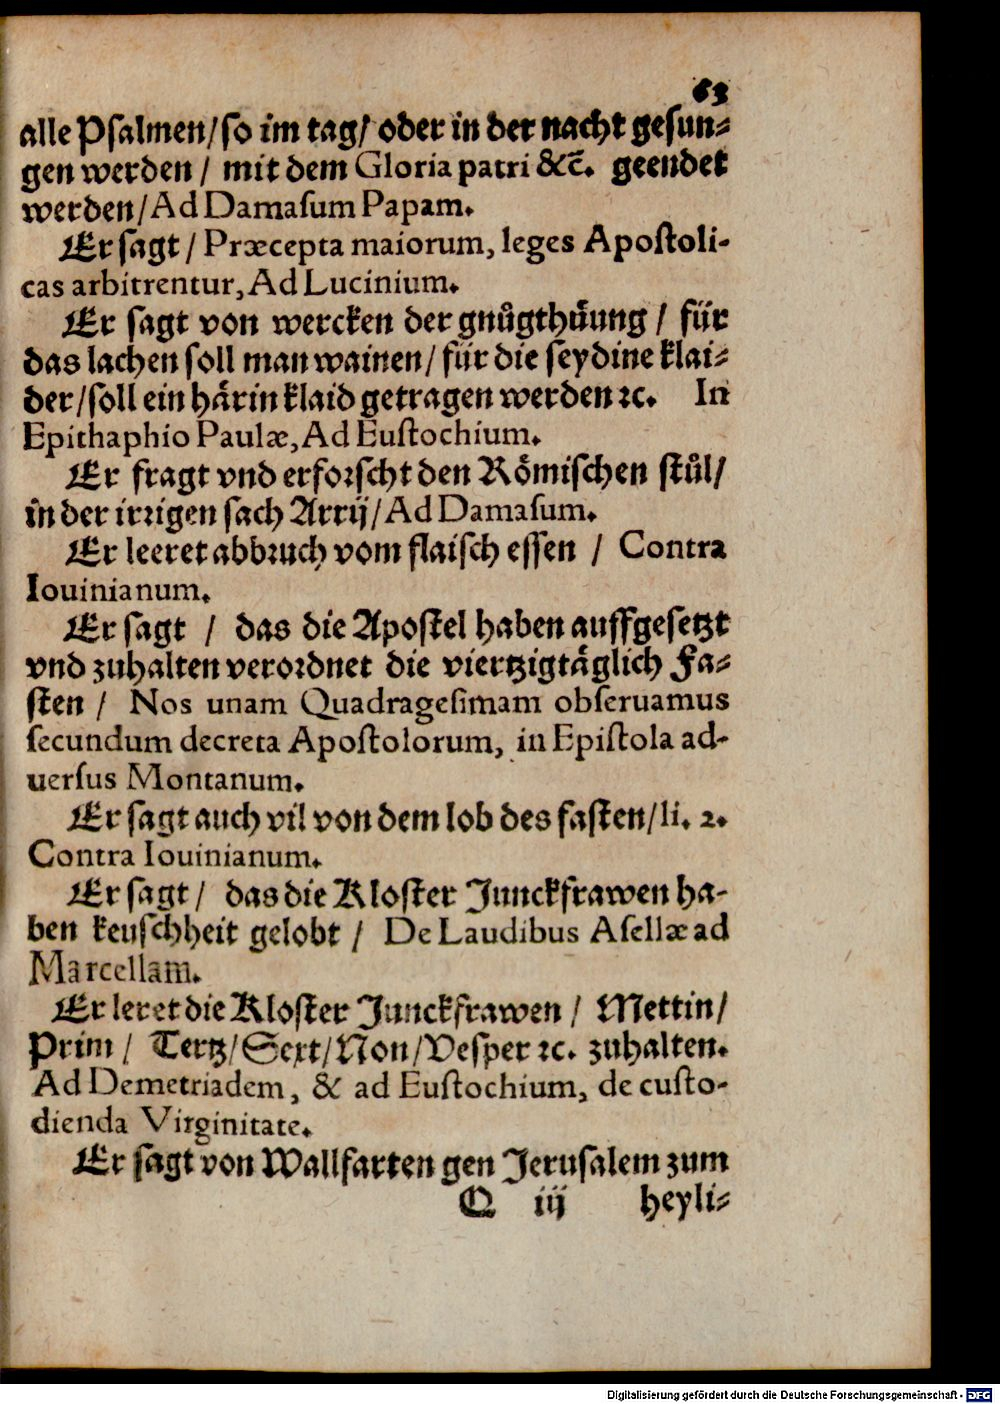 63
alle Psalmen/so im tag/ oder in der nacht gesun⸗
gen werden / mit dem Gloria patri &c̄. geendet
werden/Ad Damaſum Papam.
Er sagt / Præcepta maiorum, leges Apoſtoli-
cas arbitrentur, Ad Lucinium.
Er sagt von wercken der gnůgthůung / für
das lachen soll man wainen/ für die seydine klai⸗
der/soll ein hårin klaid getragen werden ꝛc. In
Epithaphio Paulæ, Ad Euſtochium.
Er fragt vnd erforscht den Römischen stůl/
in der irrigen sach Arrij/Ad Damaſum.
Er leeret abbruch vom flaisch essen / Contra
Iouinianum.
Er sagt / das die Apostel haben auffgesetzt
vnd zuhalten verordnet die viertzigtäglich Fa⸗
sten / Nos unam Quadrageſimam obſeruamus
ſecundum decreta Apoſtolorum, in Epiſtola ad-
uerſus Montanum.
Er sagt auch vil von dem lob des fasten/li. 2.
Contra Iouinianum.
Er sagt / das die Kloster Junckfrawen ha-
ben keuschheit gelobt / De Laudibus Aſellæ ad
Marcellam.
Er leret die Kloster Junckfrawen / Mettin/
Prim / Tertz/Sext/Non/Vesper ꝛc. zuhalten.
Ad Demetriadem, & ad Euſtochium, de cuſto-
dienda Virginitate.
Er sagt von Wallfarten gen Jerusalem zum
Q iij heyli⸗
Digitalisierung gefördert durch die Deutsche Forschungsgemeinschaft - DFG